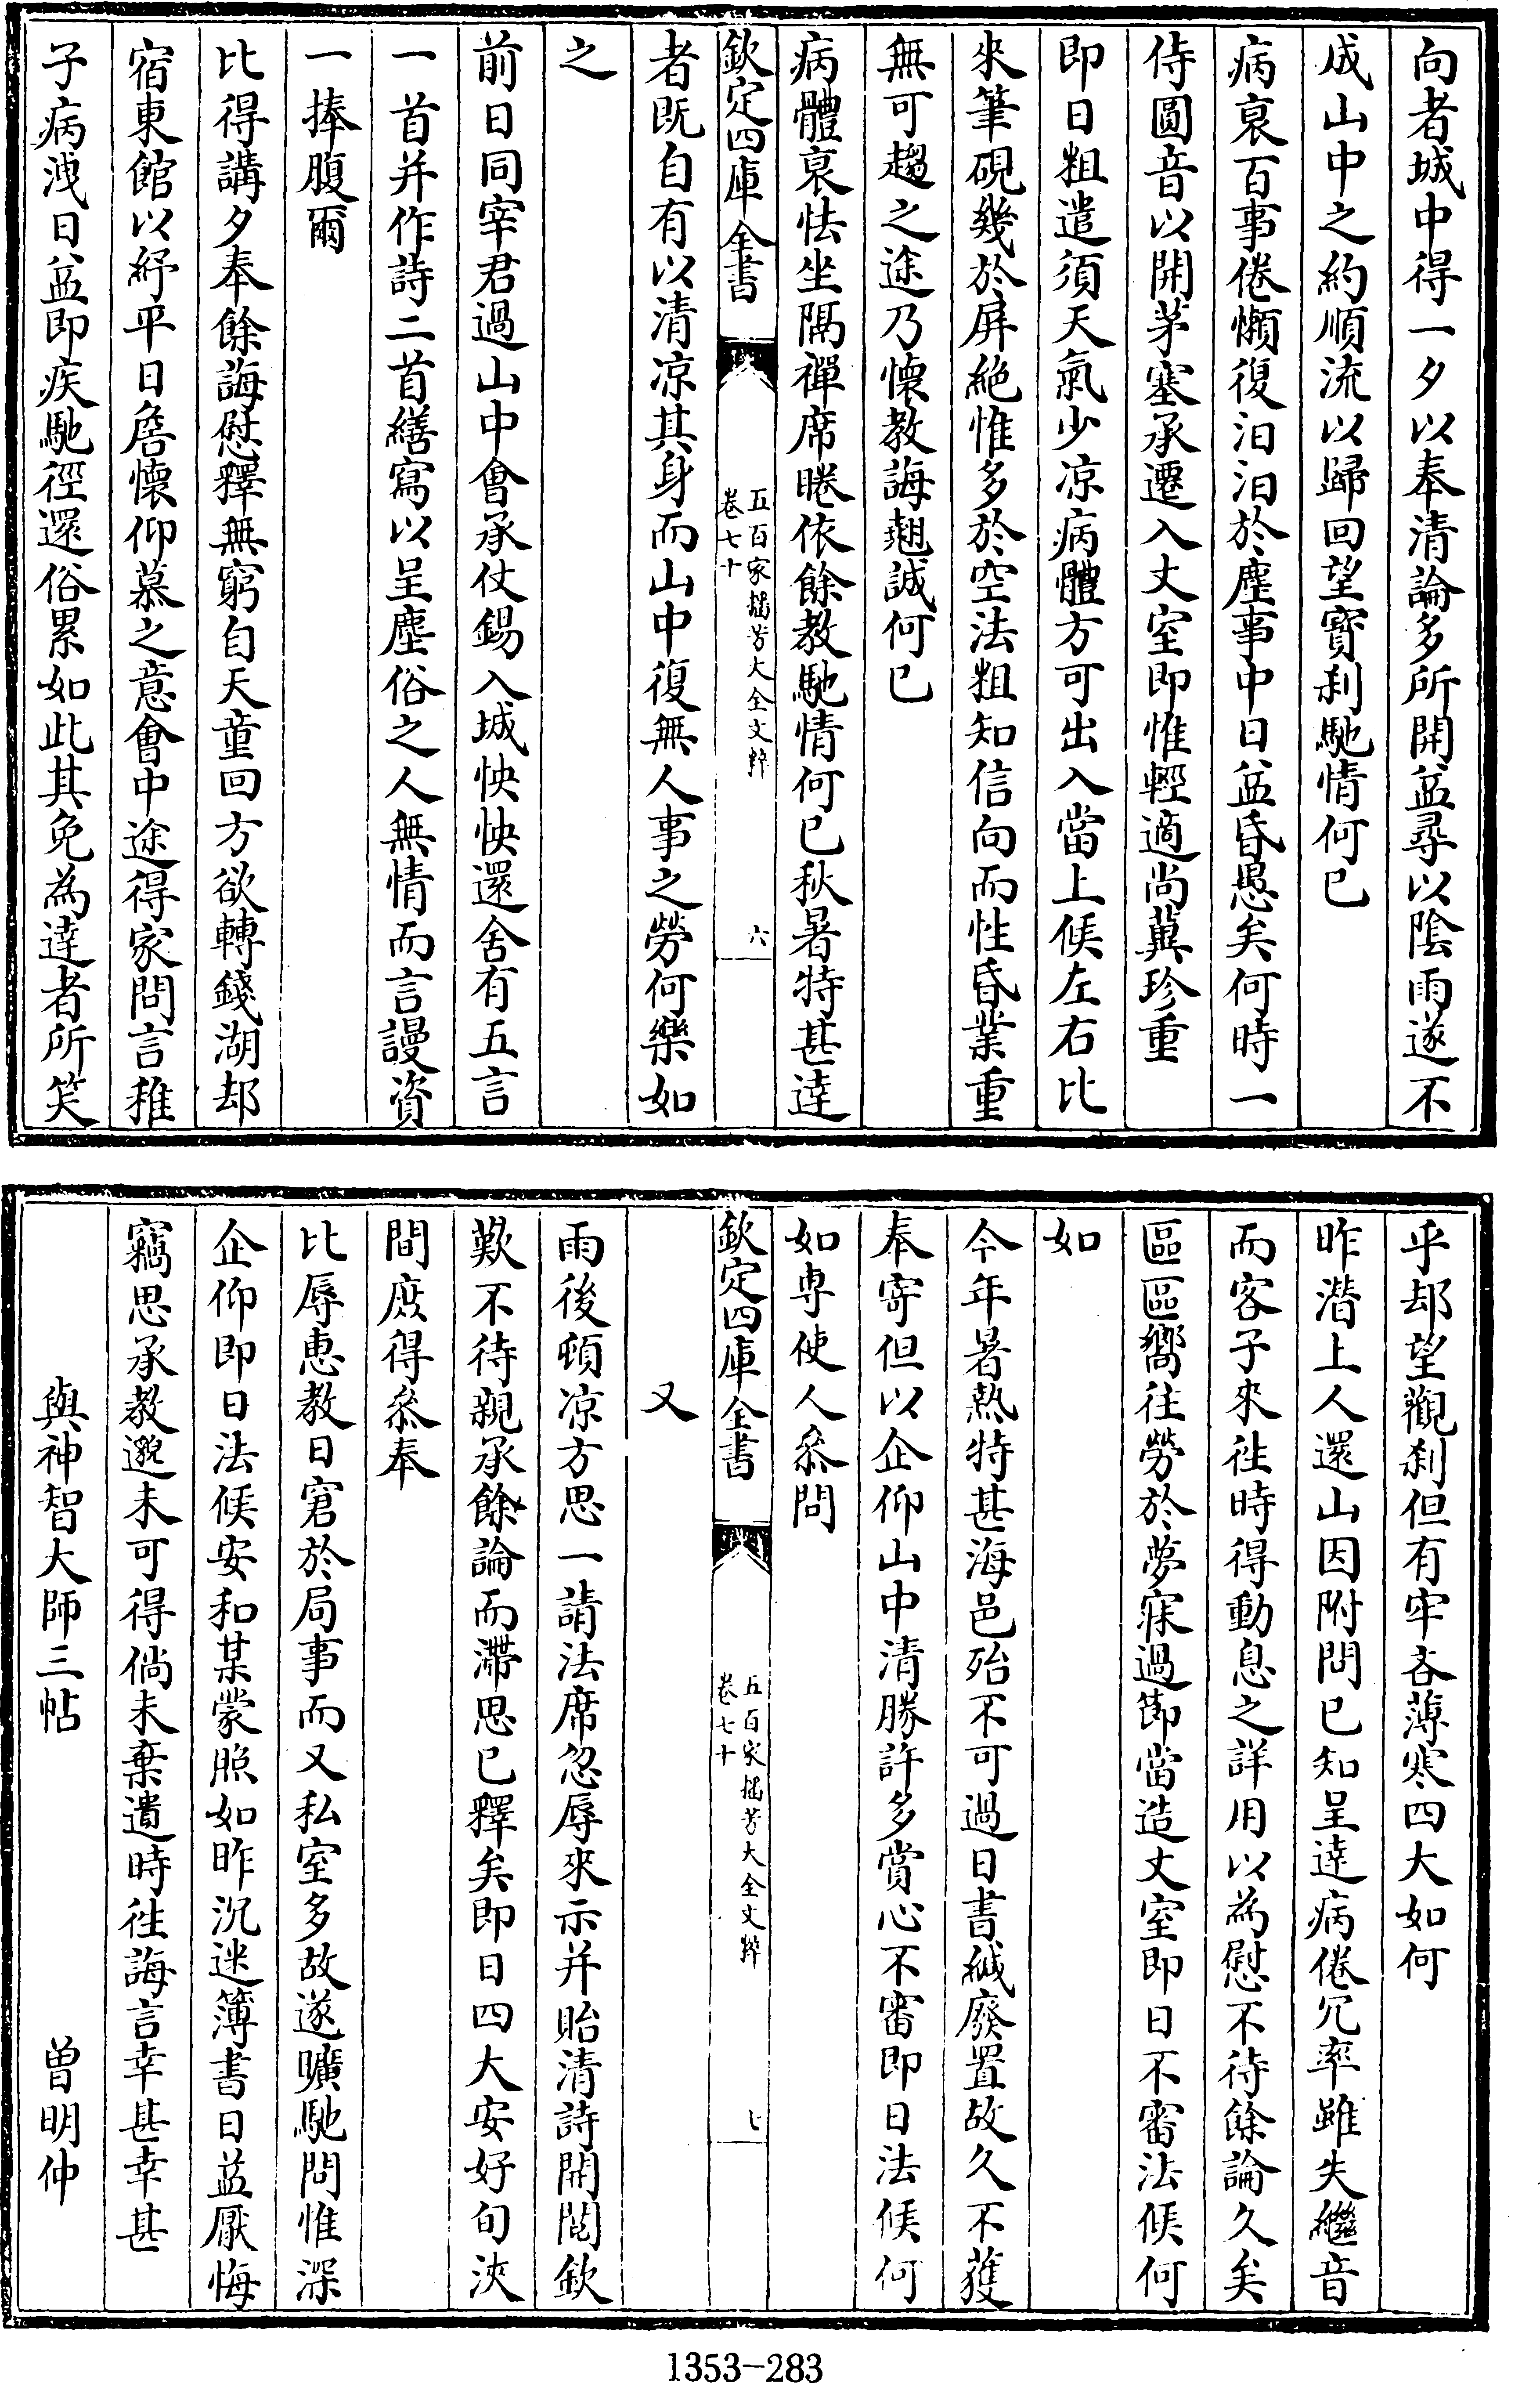 向者城中得一夕以奉清論多所開益尋以陰雨遂不
成山中之約順流以歸回望寶刹馳情何已
病衰百事倦懶復汨汨於塵事中日益昏愚矣何時一
侍圓音以開茅塞承遷入丈室即惟輕適尚冀珍重
即日粗遣須天氣少凉病體方可出入當上候左右比
來筆硯幾於屏絶惟多於空法粗知信向而性昏業重
無可趨之途乃懷教誨翹誠何已
病體衰怯坐隔禪席睠依餘教馳情何已秋暑特甚逹
欽定四庫全書
五百家播芳大全文粹
卷七十
六
者既自有以清凉其身而山中復無人事之勞何樂如
之
前日同宰君過山中會承仗錫入城怏怏還舍有五言
一首并作詩二首繕寫以呈塵俗之人無情而言謾資
一捧腹爾
比得講夕奉餘誨慰釋無窮自天童回方欲轉錢湖却
宿東館以紓平日詹懷仰慕之意會中途得家問言稚
子病洩日益即疾馳徑還俗累如此其免為逹者所笑
乎却望觀刹但有牢吝薄寒四大如何
昨潛上人還山因附問已知呈逹病倦冗率雖失繼音
而客子來徃時得動息之詳用以為慰不待餘論久矣
區區嚮往勞於夢寐過節當造丈室即日不審法候何
如
今年暑熱特甚海邑殆不可過日書緘廢置故久不獲
奉寄但以企仰山中清勝許多賞心不審即日法候何
如専使人叅問
欽定四庫全書
五百家播芳大全文粹
卷七十
七
又
雨後頓凉方思一請法席忽辱來示并貽清詩開閲欽
歎不待親承餘論而滯思已釋矣即日四大安好旬浹
間庶得叅奉
比辱惠教日窘於局事而又私室多故遂曠馳問惟深
企仰即日法候安和某蒙照如昨沉迷簿書日益厭悔
竊思承教邈未可得倘未棄遺時徃誨言幸甚幸甚
與神智大師三帖
曽明仲
1353-283